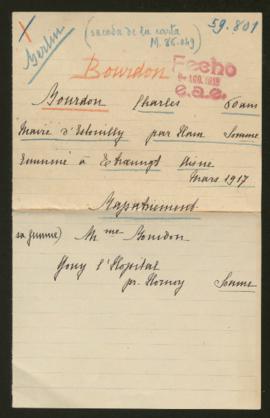 Berlin
(sacada de la carta
M. 86.049)
59.801
Bourdon
Fecho
AGO. 1918
e.a.e.
Bourdon Charles 60 ans
Maire d'Estouilly par Ham Somme
Emmené à Etraungt Aisne
Mars 1917
Rapatriement
sa femme) Mme Bourdon
Gouy l'Hopital
pr. Hornoy Somme